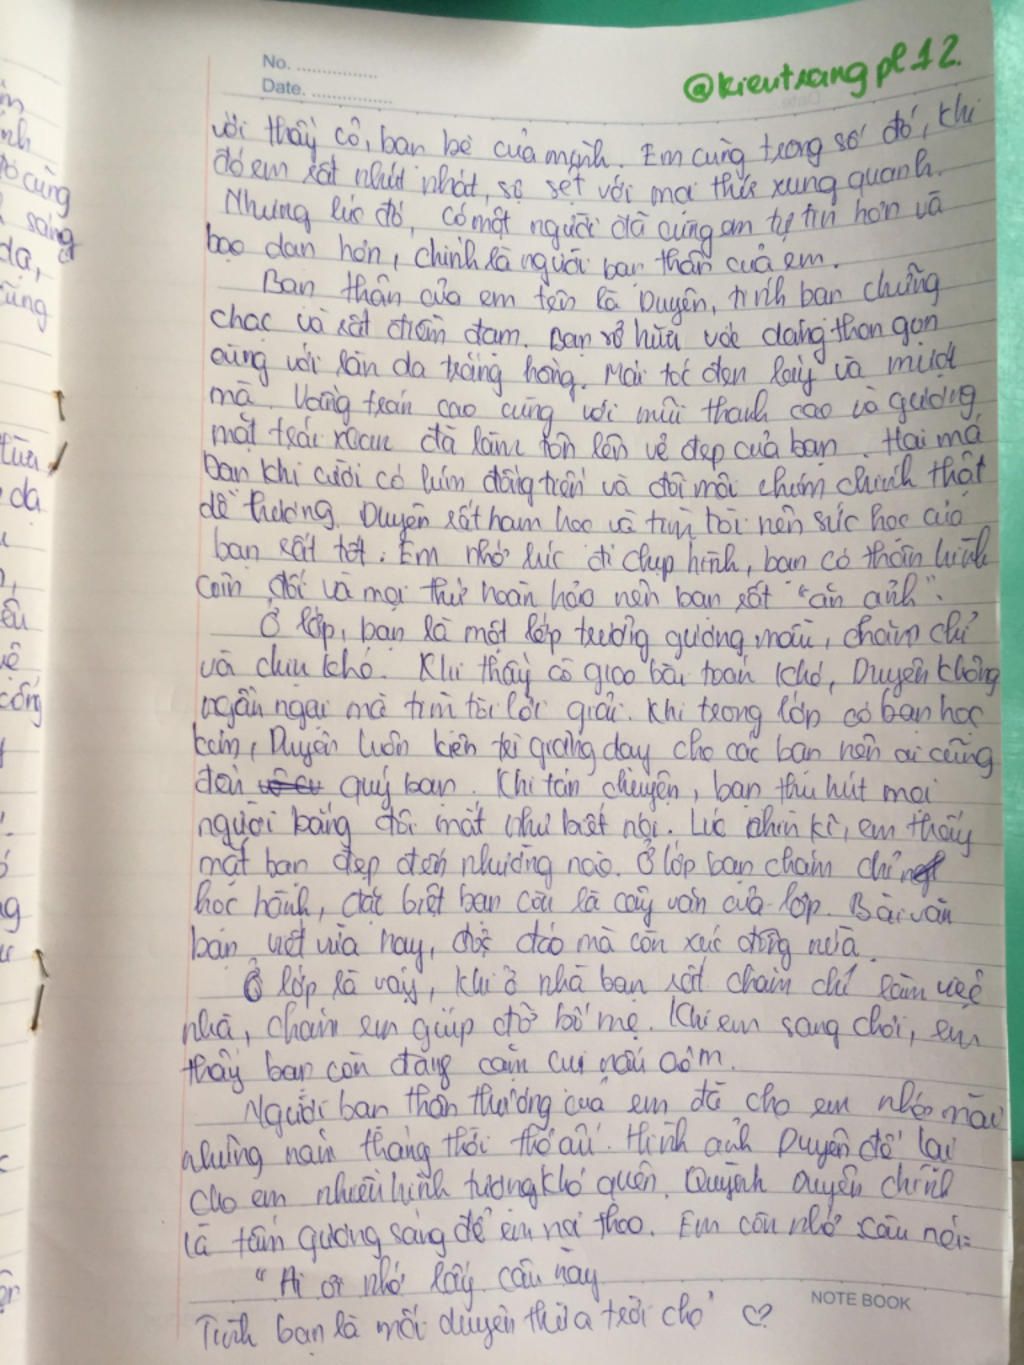 No. ...............
Date. ...............
@kieutrangpl12.
với thầy cô, bạn bè của mình. Em cũng trong số đó, khi
đó em rất nhút nhát, sợ sệt với mọi thứ xung quanh.
Nhưng lúc đó, có một người đã cùng em tự tin hơn và
bạo dạn hơn, chính là người bạn thân của em.
Bạn thân của em tên là Duyên, tính bạn chững
chạc và rất điềm đạm. Bạn sở hữu vóc dáng thon gọn
cùng với làn da trắng hồng. Mái tóc đen láy và mượt
mà. Vầng trán cao cùng với mũi thanh cao và gương
mặt trái xoan đã làm tôn lên vẻ đẹp của bạn. Hai má
bạn khi cười có lúm đồng tiền và đôi môi chúm chính thật
dễ thương. Duyên rất ham học và tìm tòi nên sức học của
bạn rất tốt. Em nhớ lúc đi chụp hình, bạn có thân hình
cân đối và mọi thứ hoàn hảo nên bạn rất "ăn ảnh".
Ở lớp, bạn là một lớp trưởng gương mẫu, chăm chỉ
và chịu khó. Khi thầy cô giao bài toán khó, Duyên không
ngần ngại mà tìm tòi lời giải. Khi trong lớp có bạn học
kém, Duyên luôn kiên trì giảng dạy cho các bạn nên ai cũng
đều quý bạn. Khi tán chuyện, bạn thu hút mọi
người bằng đôi mắt như biết nói. Lúc nhìn kĩ, em thấy
mắt bạn đẹp đến nhường nào. Ở lớp bạn chăm chỉ
học hành, đặc biệt bạn còn là cây văn của lớp. Bài văn
bạn viết vừa hay, độc đáo mà còn xúc động nữa.
Ở lớp là vậy, khi ở nhà bạn rất chăm chỉ làm việc
nhà, chăm em giúp đỡ bố mẹ. Khi em sang chơi, em
thấy bạn còn đang cặm cụi nấu cơm.
Người bạn thân thương của em đã cho em nhớ mãi
những năm tháng thời thơ ấu. Hình ảnh Duyên để lại
cho em nhiều hình tượng khó quên. Quỳnh Duyên chính
là tấm gương sáng để em noi theo. Em còn nhớ câu nói:
"Ai ơi nhớ lấy câu này
Tình bạn là mối duyên thừa trời cho" ♡
NOTE BOOK